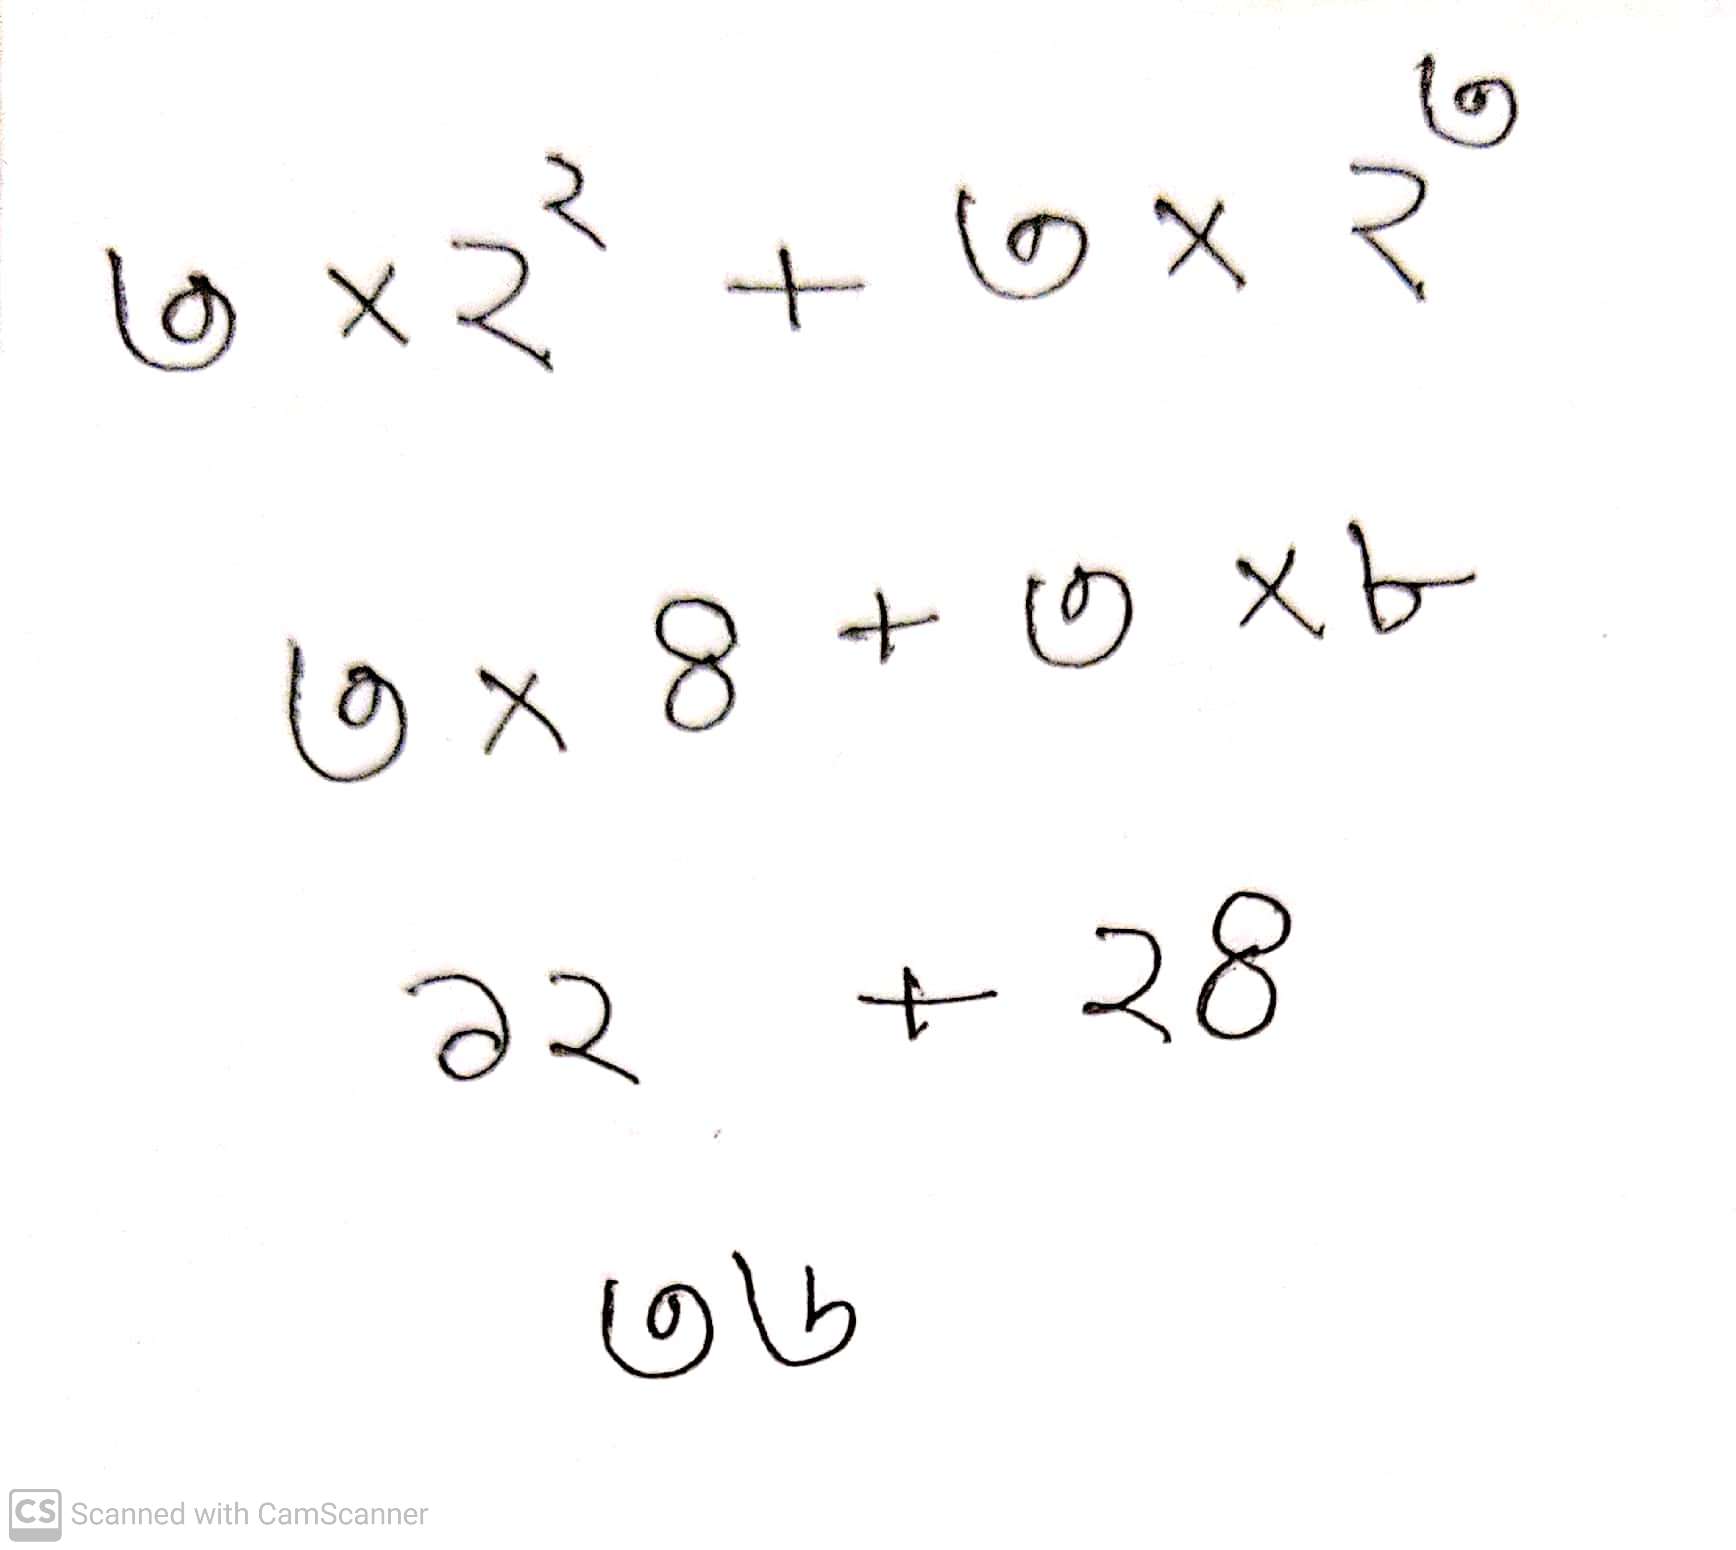 ৩ × ২^২ + ৩ × ২^৩
৩ × ৪ + ৩ × ৮
১২ + ২৪
৩৬
CS Scanned with CamScanner